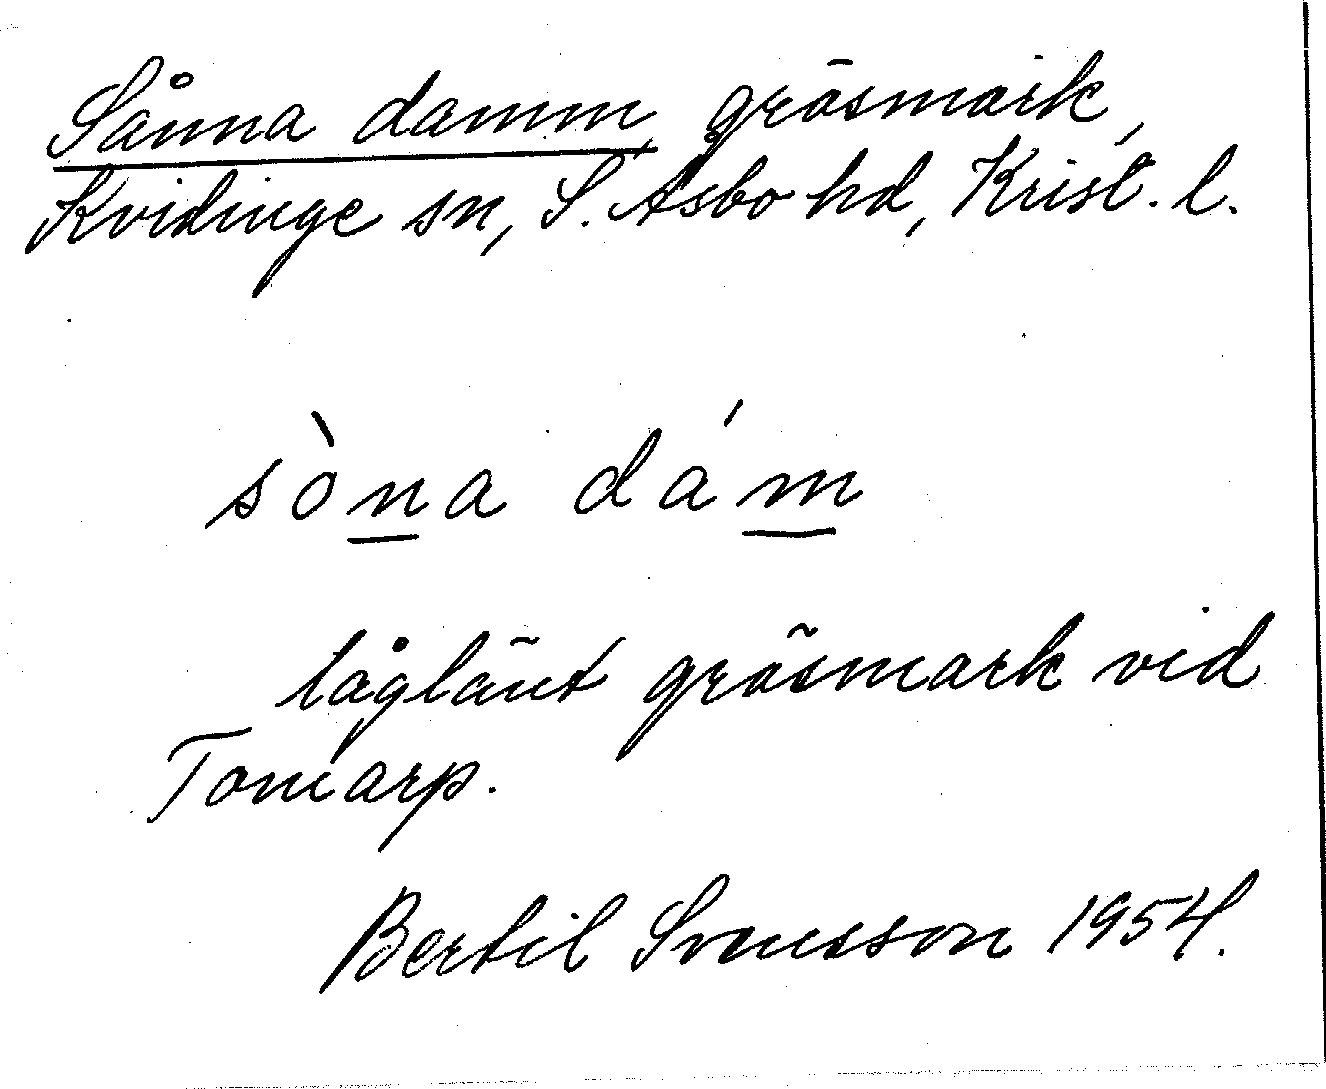 Sånna damm, gräsmark,
Kvidinge sn, S. Åsbo hd, Krist. l.
sòna dám
låglänt gräsmark vid
Tomarp.
Bertil Svensson 1954.